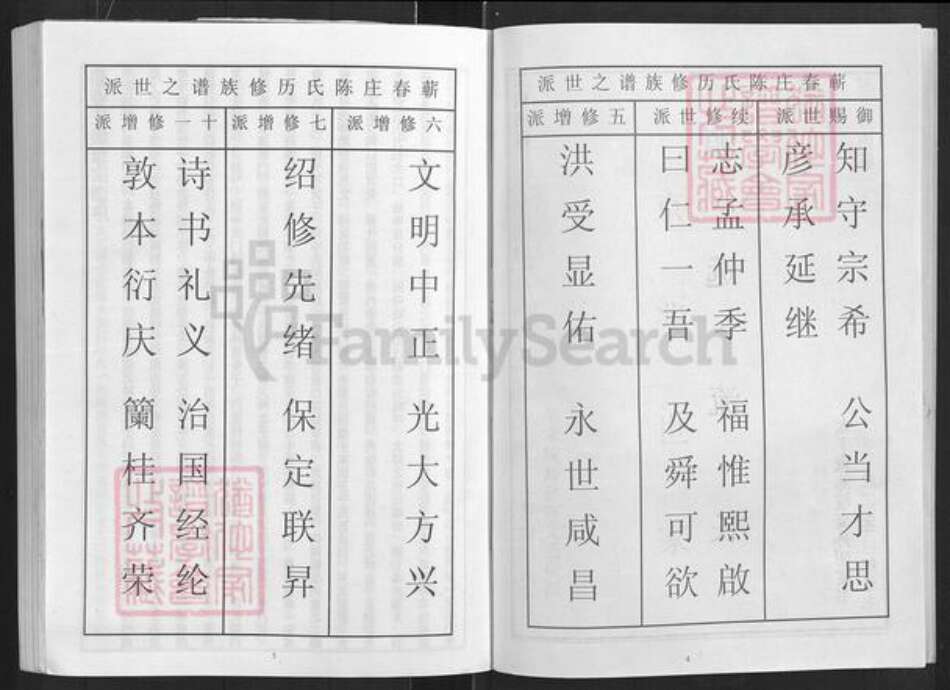 蕲春庄陈氏历修族谱之世派
御赐世派
知守宗希 公当才思
彦承延继
续修世派
志孟仲季 福惟熙啟
曰仁一吾 及舜可欲
五修增派
洪受显佑 永世咸昌
4
蕲春庄陈氏历修族谱之世派
六修增派
文明中正 光大方兴
七修增派
绍修先绪 保定联昇
十一修增派
诗书礼义 治国经纶
敦本衍庆 籣桂齐荣
FamilySearch